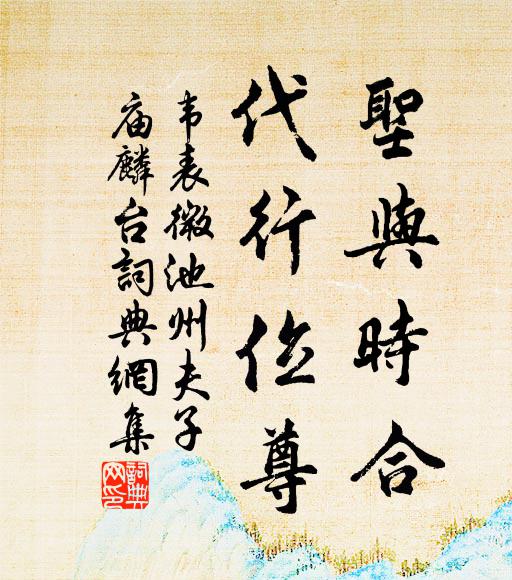 聖與時合
代行位尊
韦表微池州夫子
庙麟台詞典網集
詞典网印